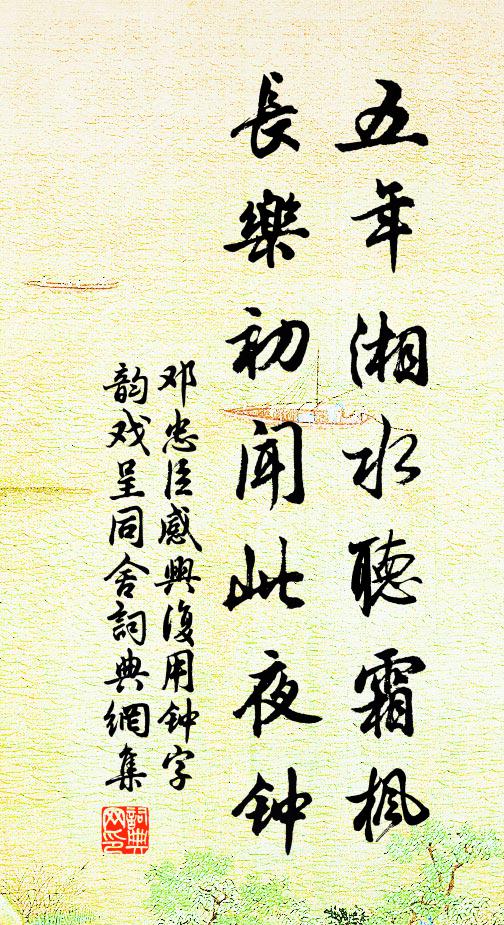 五年湘水聽霜楓
長樂初聞此夜钟
邓忠臣感興復用钟字
韵戏呈同舍詞典網集
詞典
网印